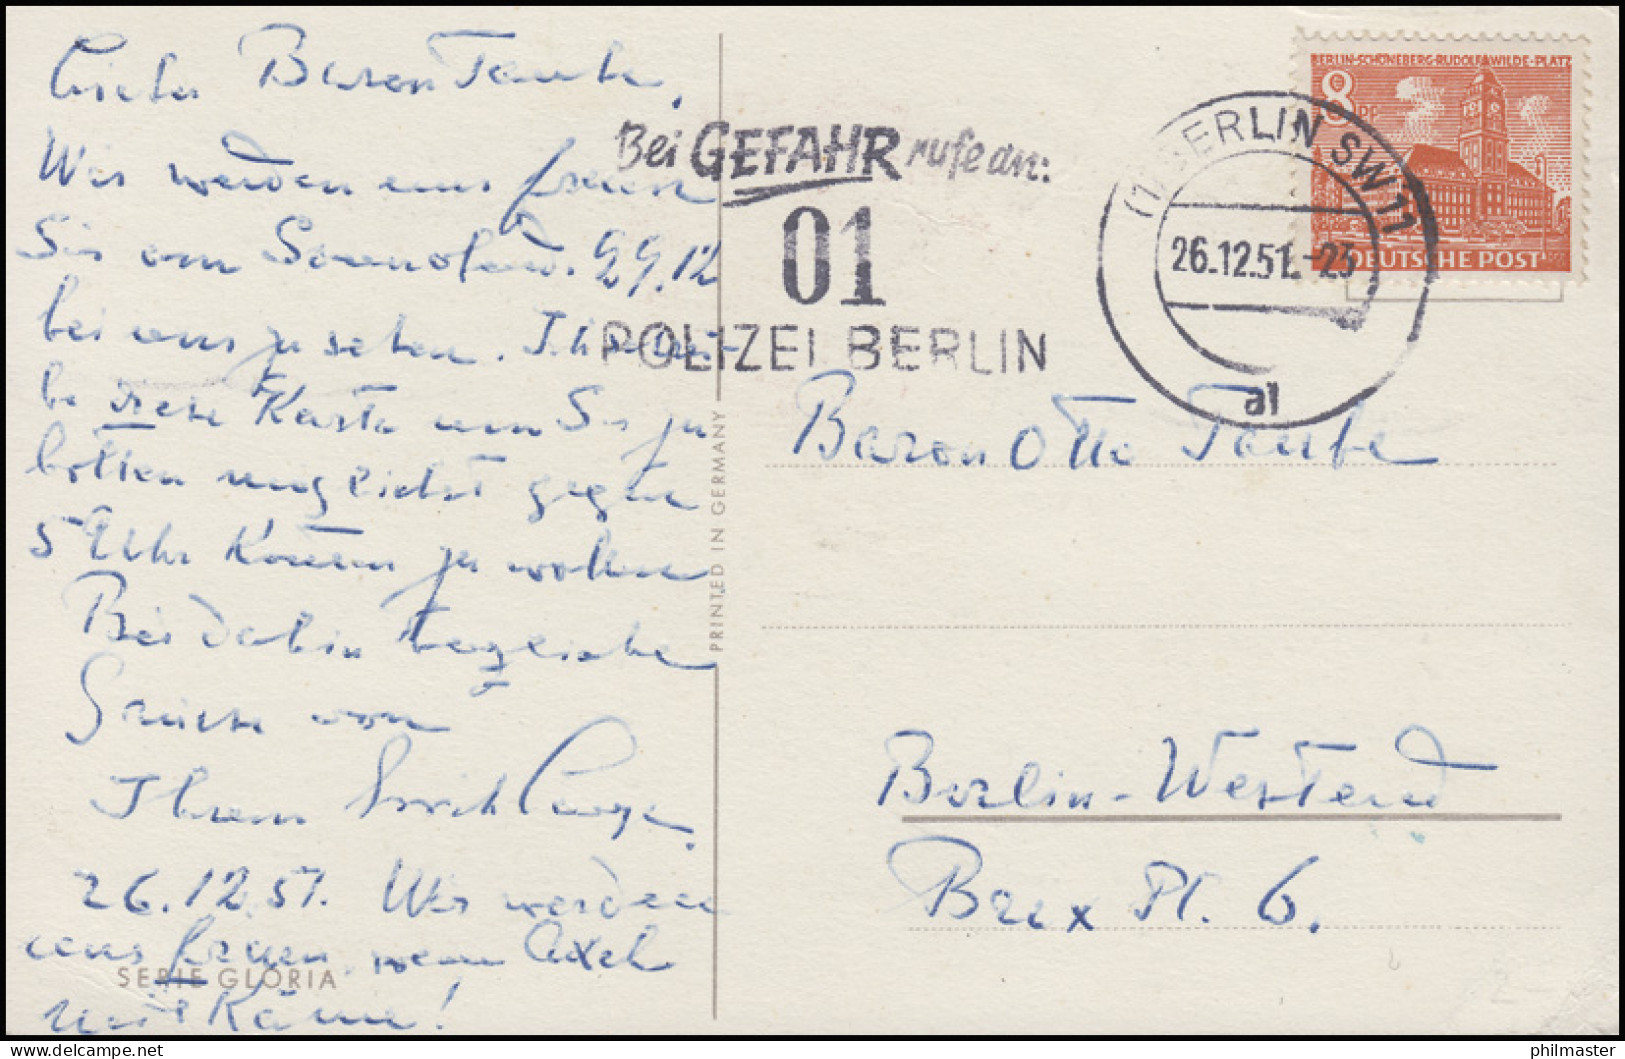 Lieber Baron Taube,
Wir werden uns freuen
Sie am Sonnabend. 29.12
bei uns zu sehen. Ich
be diese Karte um Sie zu
bitten möglichst gegen
5 Uhr kommen zu wollen
Bis dahin herzliche
Grüsse von
Ihrem
26.12.51. Wir werden
uns freuen, wenn Axel
mit käme!
SERIE GLORIA
PRINTED IN GERMANY
Bei GEFAHR rufe an:
01
POLIZEI BERLIN
BERLIN SW 11
26.12.51.-23
al
BERLIN-SCHÖNEBERG-RUDOLF-WILDE-PLATZ
8 PF
DEUTSCHE POST
Baron Otto Taube
Berlin-Westend
Brix Pl. 6.
philmaster